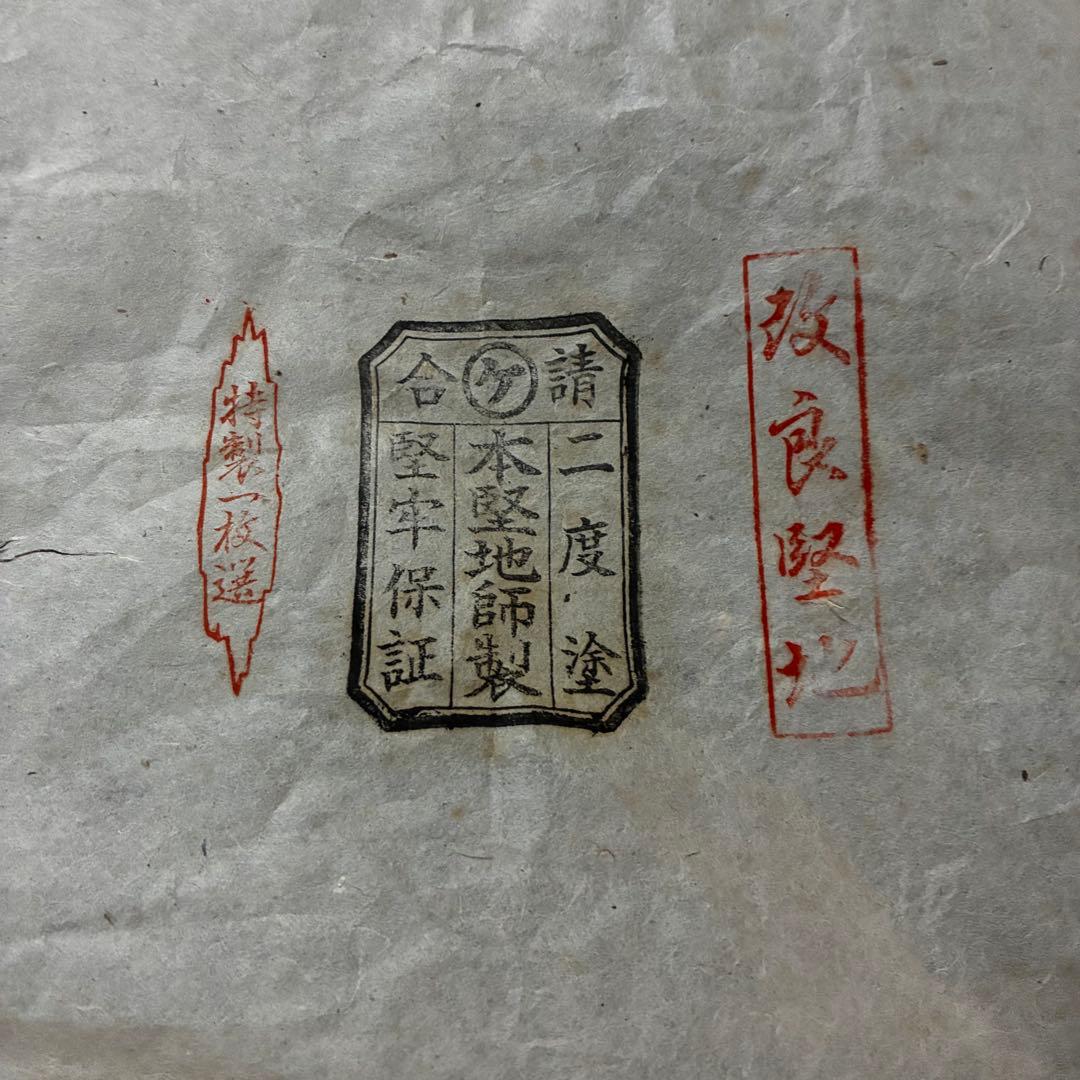 改良堅地
請ケ合
二度塗
本堅地師製
堅牢保証
特製一枚選